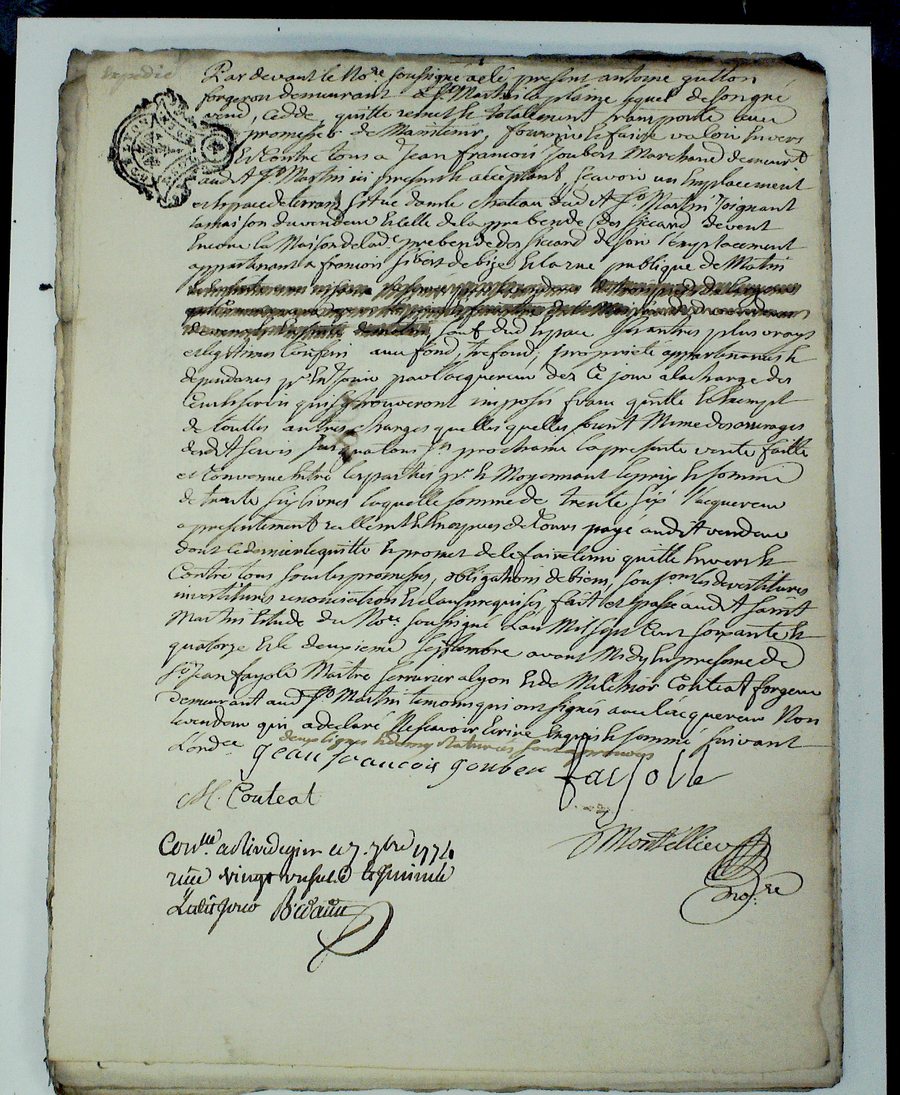 Expedié
Par devant le No.re soussigné a été present antoine guitton
forgeron demeurant a St Martin la plaine lequel de son gré
vend, cedde, quitte remet et totallement transporte avec
promesses de Maintenir, fournir et faire valoir Envers
Et Contre tous a Jean françois Joubert Marchand demeurt
audit St Martin ici present et acceptant, sçavoir un Emplacement
et espace de terrain situé dans le chateau dudit St Martin Joignant
la maison du vendeur Et celle de la prebende des Siccard de vent
Encore la Maison de lade prebende des Siccard de soir l'emplacement
appartenant a francois de bize Et la rue publique de Matin
sauf dud espace ses autres plus vrays
et legitimes Confins avec fond, trefond, proprieté appartenances et
dependances pr En Jouir par l'acquereur dez Ce jour a la charge des
Cens et servis qui s'y trouveront imposés franc quitte Et Exempt
de touttes autres Charges quelles quelles soient Meme des arrerages
desdits servis Jusqu'a tous St prochain la presente vente faitte
et Convenue Entre les parties pr et Moyennant le prix et somme
de trente six livres laquelle somme de trente six l. l'acquereur
a presentement reellement et en especes de Cours payé audit vendeur
dont le dernier le quitte Et promet de le faire tenir quitte Envers et
Contre tous sous les promesses, obligations de biens, soumissions devestitures
investitures renonciations Et clauses requises, fait et passé audit saint
Martin Etude du No.re soussigné L'an Mil sept Cent soixante et
quatorze Et le deuxieme septembre avant Midy En presence de
Sr Jean fayole Maitre serrurier a lyon Et de Melchior Conteat forgeur
demeurant audt St Martin temoins qui ont signés avec l'acquereur Non
le vendeur qui a declaré Ne sçavoir Ecrire Enquis et sommé suivant
L'ordce deux lignes et demy raturées sont approuvés
Jean françois Joubert fayolle
M. Conteat
Montellier
no.re
Conllé a Rivedegier le 7. 7bre 1774
reçu vingt un sols
Bridaut